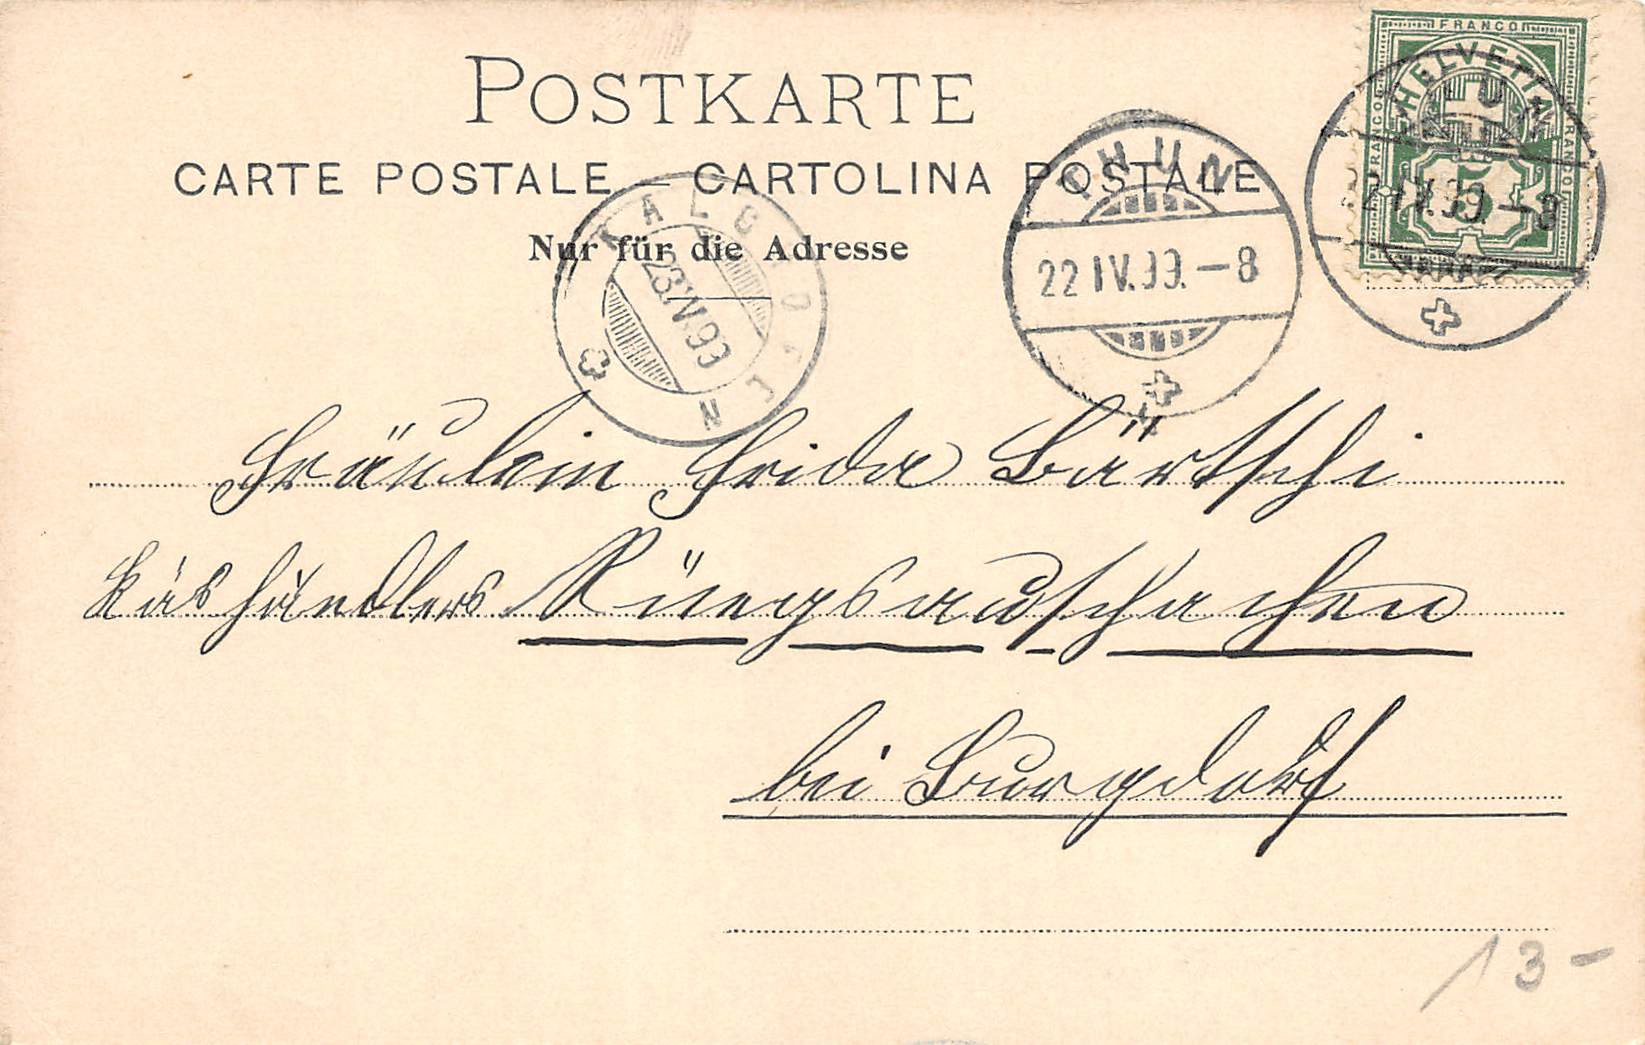 POSTKARTE
CARTE POSTALE – CARTOLINA POSTALE
Nur für die Adresse
FRANCO
HELVETIA
FRANCO
FRANCO
5
THUN
22.IV.99.–8
THUN
22 IV.99.–8
KALCHOFEN
23.IV.99
Fräulein Frida Bärtschi
Käshändlers Rüegsauschachen
bei Burgdorf
13–